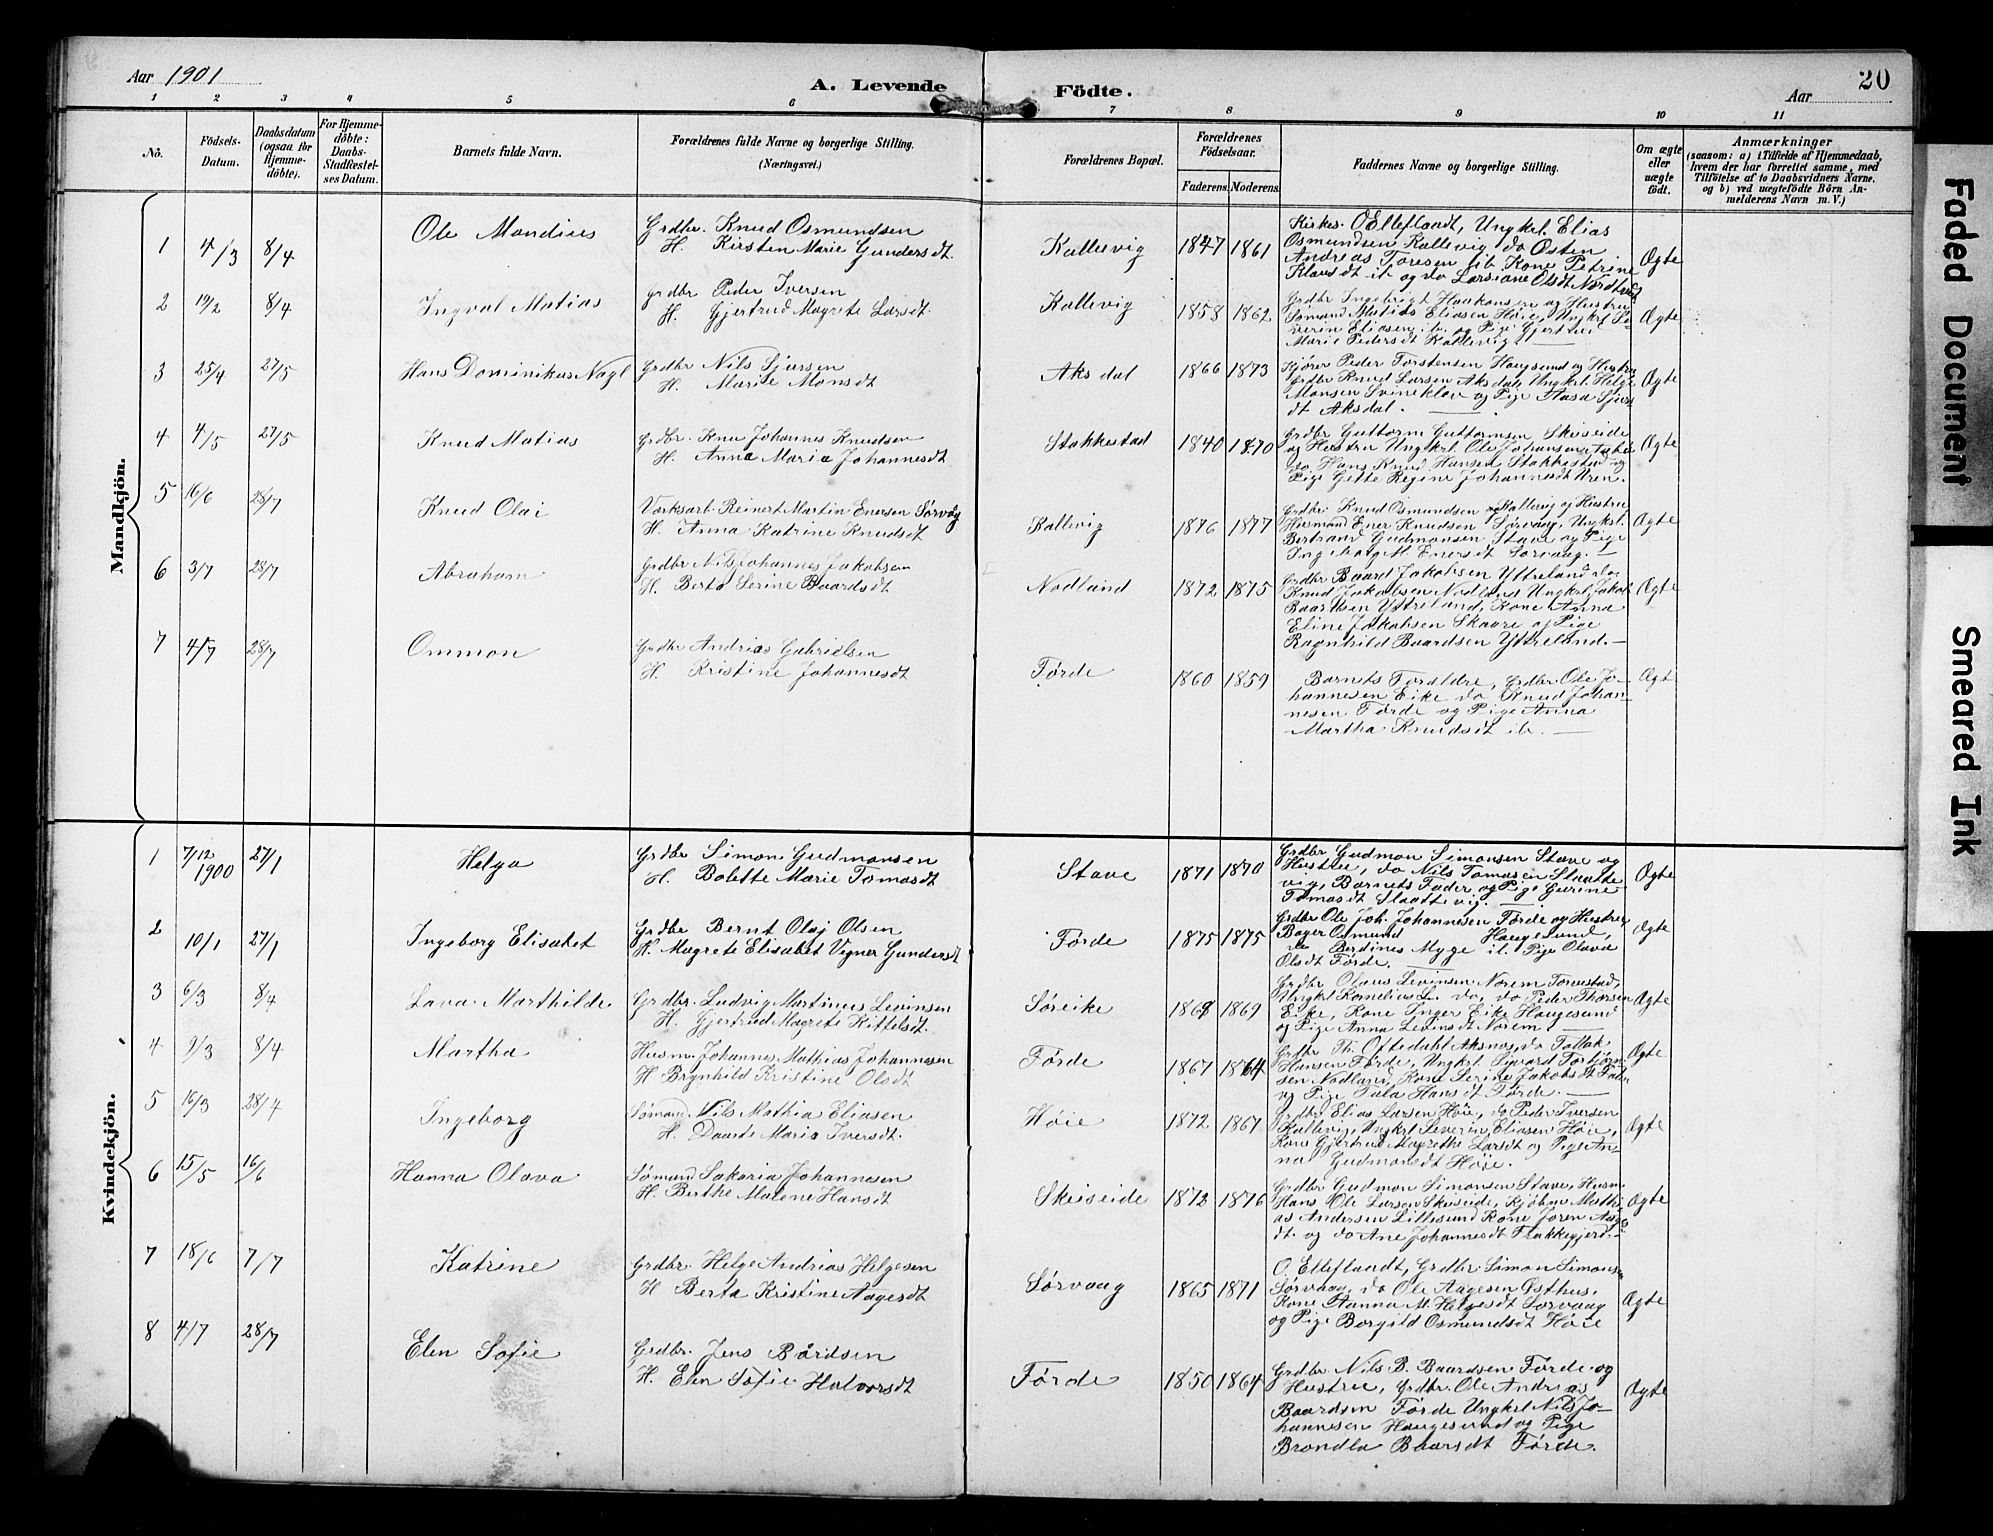 Aar 1901
A. Levende Födte.
Aar
20
1 2 3 4 5 6 7 8 9 10 11
No.
Födsels-Datum.
Daabsdatum (ogsaa for Hjemme-döbte).
For Hjemme-döbte: Daabs-Stadfestel-ses Datum.
Barnets fulde Navn.
Forældrenes fulde Navne og borgerlige Stilling. (Næringsvei.)
Forældrenes Bopæl.
Forældrenes Födselsaar.
Faderens. Moderens.
Faddernes Navne og borgerlige Stilling.
Om ægte eller uægte födt.
Anmærkninger
(saasom: a) i Tilfælde af Hjemmedaab,
hvem der har forrettet samme, med
Tilföielse af to Daabsvidners Navne.
og b) ved uægtefödte Börn An-
melderens Navn m. V.)
Mandkjön.
1 4/3 8/4 Ole Mandius
Grdbr. Knud Osmundsen
H. Kirsten Marie Gundersdt.
Kallevig 1847 1861
Kirkes. O Elleflaadt, Ungkrl. Elias
Osmundsen Kallevig do Osten
Andreas Toresen ib. Kone Petrine
Klausdt ib og do Larsiane Olsdt
Ægte
2 19/2 8/4 Ingval Matias
grdbr Peder Iversen
H. Gjertrud Magrete Larsdt.
Kallevig 1858 1862
Grdbr Ingebrigt Haakonsen og Hustru
Sømand Matias Eliasen Høie, Ungkrl Se-
verin Eliasen ib. og Pige Gjertrud
Marie Pedersdt Kallevig
Ægte
3 25/4 27/5 Hans Dominikus Nagl
Grdbr Nils Sjursen
H. Marite Monsdt
Aksdal 1866 1873
Kjører Peder Torstensen Haugsund og Hustru
Grdbr Knud Larsen Aksdal, Ungkrl. Helge
Monsen Svinekløv og Pige Aasa Sjurs-
dt Aksdal.
Ægte
4 4/5 27/5 Knud Matias
Grdbr. Knu Johannes Knudsen
H. Anna Maria Johannesdt
Stakkestad 1840 1870
Grdbr Guttorm Guttormsen Skeiseide
og Hustru Ungkrl. Ole Johansen
do Hans Knud Hansen Stakkestad og
Pige Gitte Regine Johannesdt
Ægte
5 16/6 28/7 Knud Olai
Varksarb. Reinert Martin Enersen Sørvåg
H. Anna Katrine Knudsdt
Kallevig 1876 1877
Grdbr. Knud Osmundsen Kallevig og Hustru
Husmand Ener Knudsen Sørvaag, Ungkrl.
Bertrand Gudmonsen Stave og Pige
Ingeborg M. Enersdt Sørvaag.
Ægte
6 3/7 28/7 Abraham
Grdbr Nils Johannes Jakobsen
H. Berta Serine Baardsdt
Nodland 1872 1875
Grdbr Baard Jakobsen Yttreland do
Knud Jakobsen Nodland Ungkrl. Jakob
Baardsen Yttreland, Kone Anna
Eline Jakobsen Skaare og Pige
Ragnhild Baardsen Yttreland.
Ægte
7 4/7 28/7 Ommon
Grdbr Andrias Gabrielsen
H. Kristine Johannesdt
Førde 1860 1859
Barnets Forældre, Grdbr. Ole Jo-
hannesen Eike do Knud Johan-
nesen Førde og Pige Anna
Martha Knudsdt ib.
Ægt
Kvindekjön.
1 7/12 1900 27/1 Helga
Grdbr Simon Gudmonsen
H. Bolette Marie Tomasdt
Stave 1871 1870
Grdbr Gudmon Simonsen Stave og
Hustru, do Nils Tomasen Slaatte-
vig, Barnets Fader og Pige Gurine
Tomasdt Slaattevig.
Ægte
2 10/1 27/1 Ingeborg Elisabet
Grdbr Bernt Olaj Olsen
H. Magrete Elisabet Vegner Gundersdt
Førde 1875 1875
Grdbr Ole Joh. Johannesen Førde og Hustru,
Bager Osmund Haugesund,
do Berdines Myge ib. Pige Olava
Olsdt Førde.
Ægte
3 6/3 8/4 Lava Marthilde
Grdbr. Ludvig Martinus Levinsen
H. Gjertrud Magrete Kittelsdt.
Søreike 1869
Grdbr Olaus Levinsen Norem Torvestad,
Ungkl Kornelius L. do, do Peder Thorsen
Eike, Kone Inger Eike Haugesund
og Pige Anna Levinsdt Norem.
Ægte
4 9/3 8/4 Martha
Husm. Johannes Mathias Johannesen
H Brynhild Kristine Olsdt
Førde 1867 1864
Grdbr Th. Oftedahl Aksnes, do Tollak
Hansen Førde, Ungkrl. Sivard Torbjørn-
sen Nodland, Kone Serine Jakobsdt
og Pige Tala Hansdt Førde.
Ægte
5 16/3 28/4 Ingeborg
Sømand Nils Mathia Eliasen
H. Daarte Maria Iversdt.
Høie 1872 1867
Grdbr Elias Larsen Høie, do Peder Iversen
Kallevig, Ungkrl Severin Eliasen Høie,
Kone Gjertrud Magrethe Larsdt og Pige An-
na Gudmonsdt Høie.
Ægte
6 15/5 16/6 Hanna Olava
Sømand Sakaria Johannesen
H. Berthe Malene Hansdt
Skeiseide 1872 1876
Grdbr Gudmon Simonsen Stave, Husm
Hans Ole Larsen Skeiseide, Kjøbm Mathi-
as Andersen Litlesund Kone Joren
dt. og do Ane Johannesdt
Ægte
7 18/6 7/7 Katrine
Grdbr. Helge Andrias Helgesen
H Berta Kristine Aagesdt
Sørvaag 1865 1871
O. Elleflaadt, Grdbr. Simon Simonsen
Sørvaag, do Ole Aagesen Østhus,
Kone Hanna M. Helgesdt Sørvaag
og Pige Borgild Osmundsdt Høie
Ægte
8 4/7 28/7 Elen Sofie
Grdbr. Jens Bårdsen
H. Elen Sofie Halvorsdt
Førde 1850 1864
Grdbr Nils B. Baardsen Førde og
Hustru, Grdbr. Ole Andrias
Baardsen Førde Ungkrl Nils Jo-
hannesen Haugesund og Pige
Brondla Baarsdt Førde.
Ægte
Faded Document
Smeared Ink